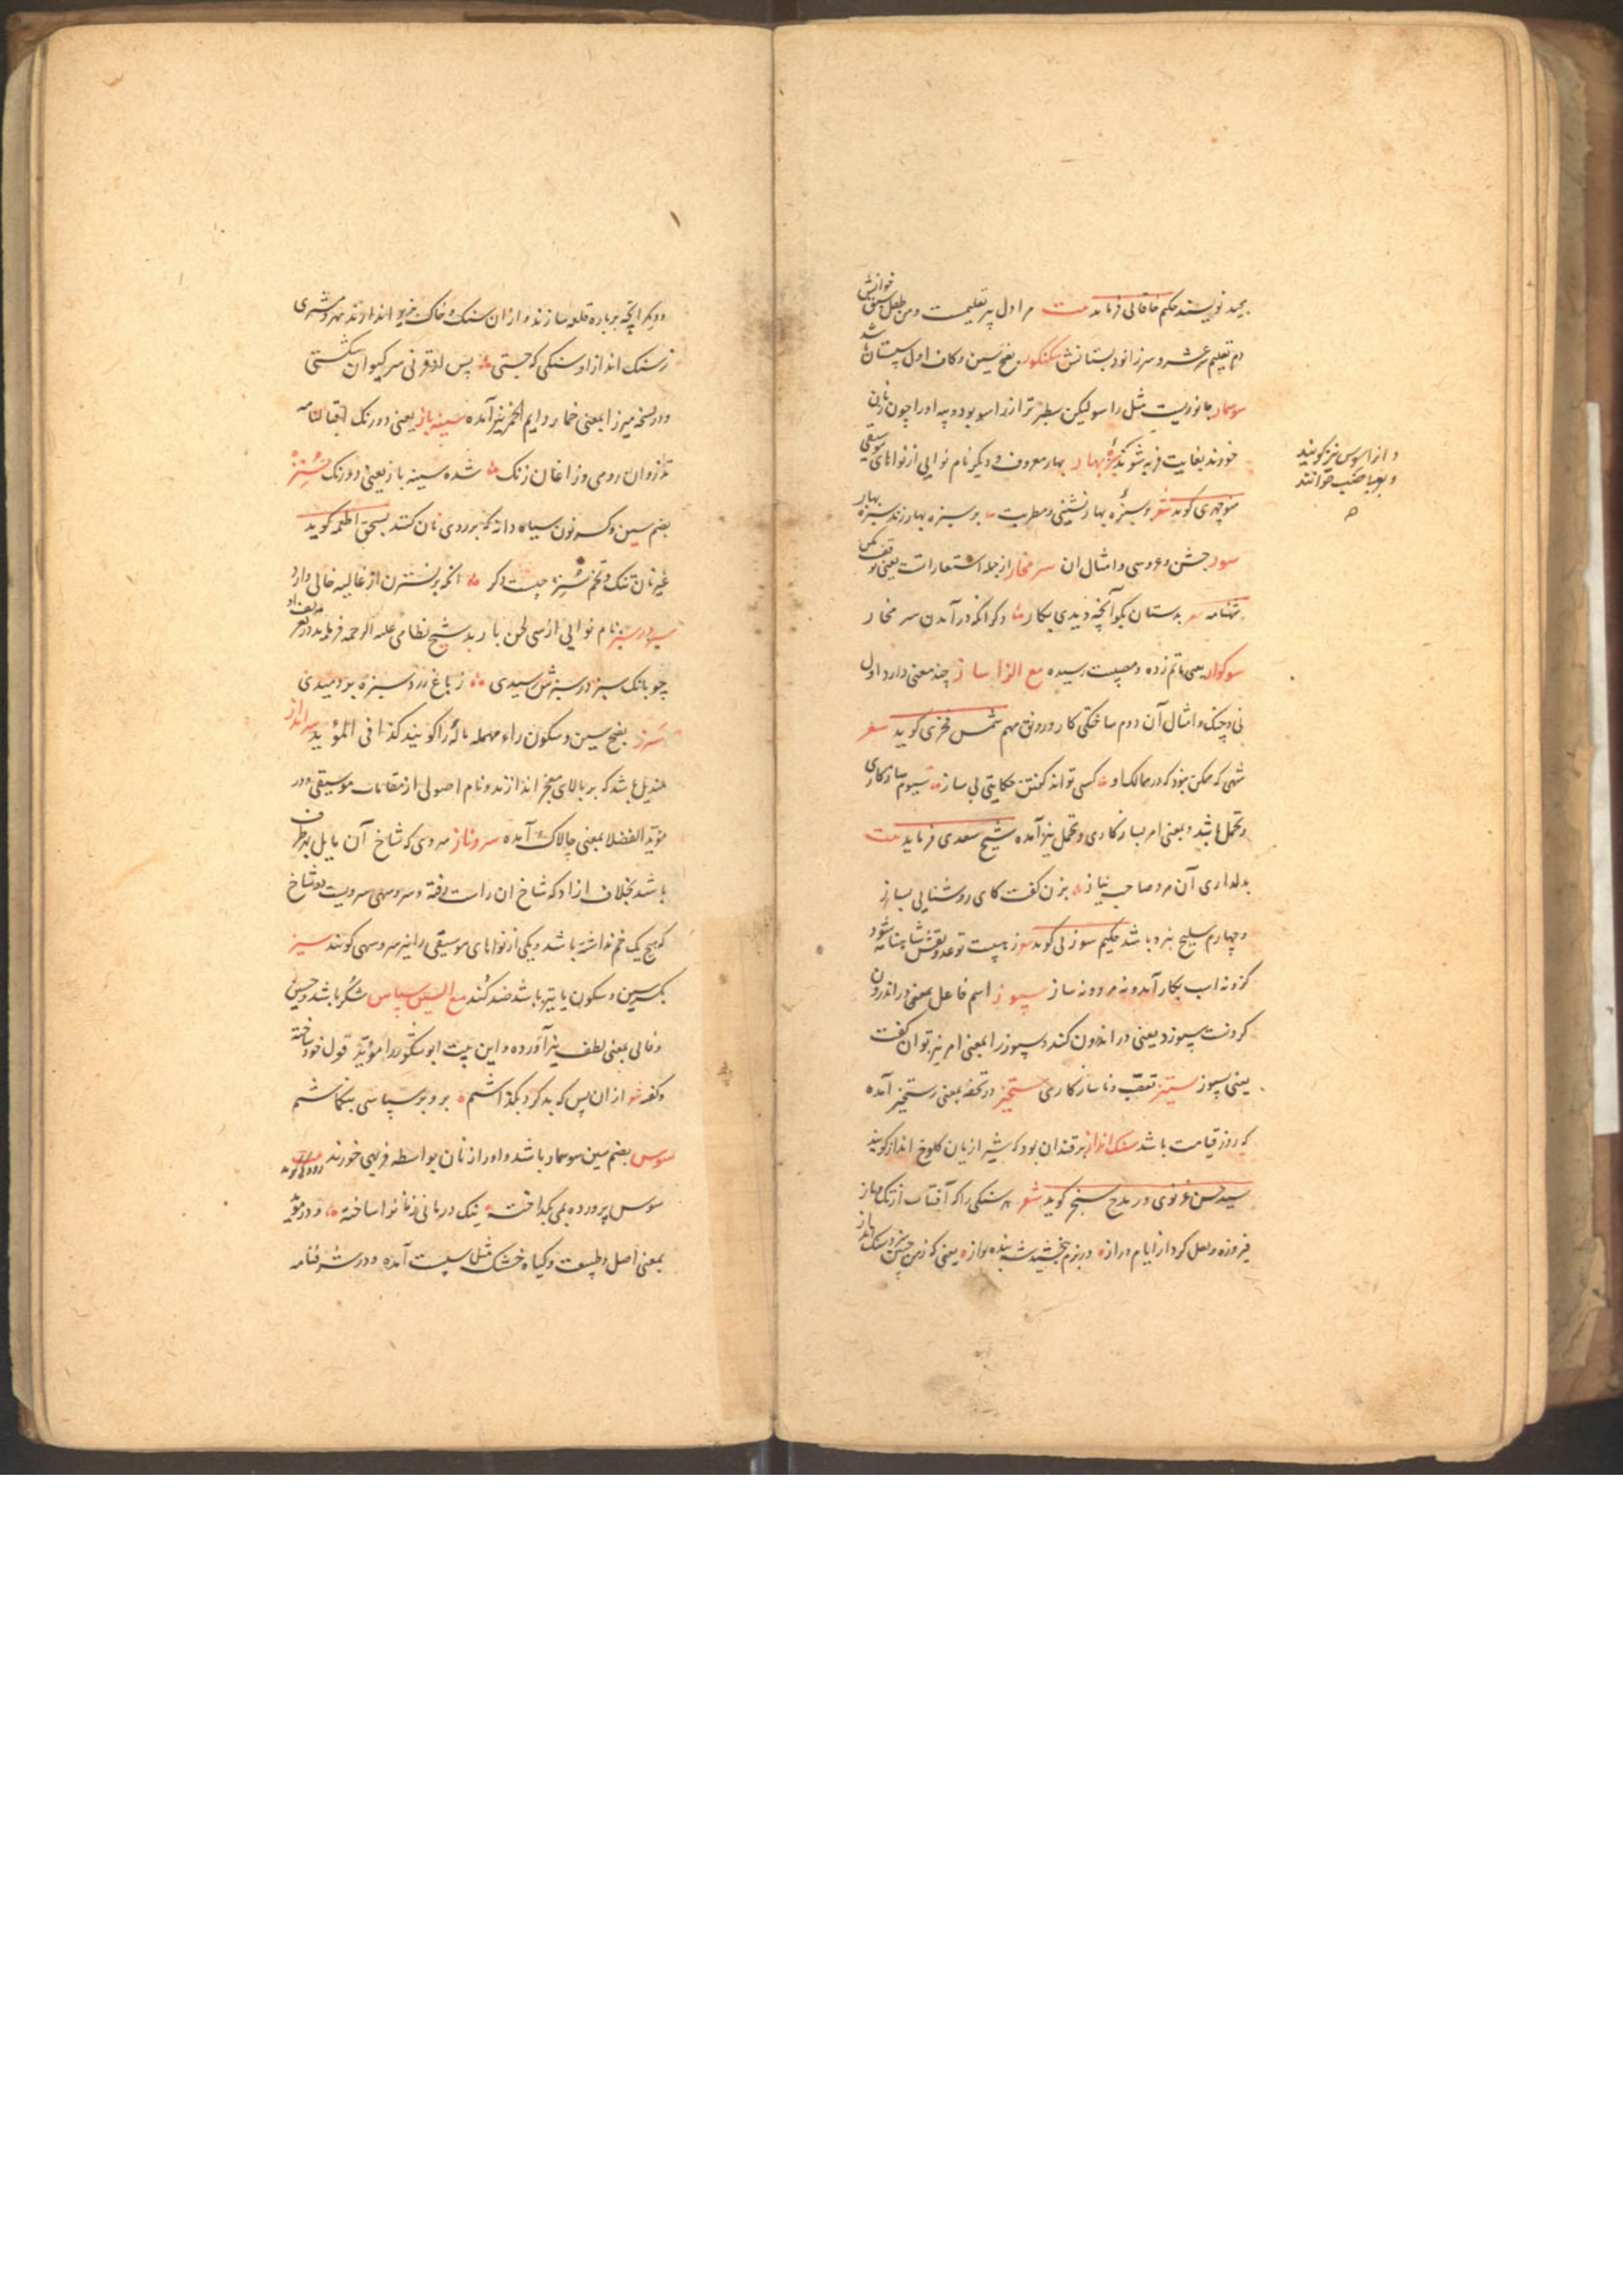 بجید نویسند حکیم خاقانی فرماید بیت مرا دل پیر تعلیمست و من طفل سبق خوانش
دم تعلیم سر عشر و سر زانو دبستانش سکنکور بفتح سین و کاف اول سپستان باشد
سوسمار جانوریست مثل راسو لیکن سطبرتر از راسو بود و پیه او را چون زنان
خورند بغایت فربه شوند سبزهٔ بهار بهار معروف و دیگر نام نوایی از نواهای موسیقی
و از اسوس نیز گویند
و بعربی ضب خوانند
منوچهری گوید شعر و سبزهٔ بهار نشینی و مطربت بر سبزه بهار زند سبزه بهار
سور جشن و عروسی و امثال آن سر مخار از جمله استعارات یعنی توقف مکن
شهنامه شعر بدستان بگو آنچه دیدی بکار دگر آنکه در آمدن سر مخار
سوکوار یعنی ماتم زده و مصیبت رسیده مع الزا ساز چند معنی دارد اول
نی و چنک و امثال آن دوم ساختگی کار و رونق مهم شمس فخری گوید شعر
شهی که ممکن نبود که در ممالک او کسی تواند گفتن حکایتی بی ساز سیوم سازکاری
و تحمل باشد و بمعنی امر بسازکاری و تحمل نیز آمده شیخ سعدی فرماید بیت
بدلداری آن مرد صاحب نیاز بزن گفت کای روشنایی بساز
و چهارم سلیح نبرد باشد حکیم سوزنی گوید
کزو نه اسب بکار آمد و نه مرد و نه ساز سپوز اسم فاعل بمعنی در اندرون
کردنست سپوزد یعنی در اندرون کند و سپوز را بمعنی امر نیز توان گفت
یعنی بسپوز ستیز تعصب و ناسازکاری ستخیز در تحفه بمعنی رستخیز آمده
که روز قیامت باشد سنک انداز برقندان بود که شیرازیان کلوخ انداز گویند
سید حسن غزنوی در مدح سنجر گوید شعر هر سنکی را که آفتاب از تک و تاز
فیروزه و لعل کرد از ایام دراز در بزم ببخشید شه بنده نواز یعنی که ز من چنین بزد سنک انداز
و دیگر آنچه بر باره قلعه سازند و از آن سنک و خاک بزیر اندازند مهر و مشتری
ز سنک انداز او سنکی که جستی پس از قرنی سر کیوان شکستی
و در نسخه میرزا بمعنی خمار و دایم الخمر نیز آمده سینه باز یعنی دو رنک اقبالنامه
تذروان رومی و زاغان زنک شده سینه باز یعنی دو رنک شنیز
بضم سین و کسر نون سیاه دانه که بر روی نان کنند بسحق اطعمه گوید
غیر نان تنک و تخم شنیز چیست دگر آنکه بر نسترن از غالیه خالی دارد
سبز در سبز نام نوایی از سی لحن باربد شیخ نظامی علیه الرحمه فرماید در تعریف او
چو بانک سبز در سبزش شنیدی ز باغ زرد سبزه بر دمیدی
سرز بفتح سین و سکون راء مهمله ناله را گویند کذا فی المؤید سرانداز
مندیل باشد که بر بالای معجر اندازند و نام اصولی از مقامات موسیقی و در
مؤید الفضلا بمعنی چالاک آمده سروناز سروی که شاخ آن مایل بهر طرف
باشد بخلاف آزاد که شاخ آن راست رفته و سرو سهی سرویست دو شاخ
که هیچ یک خم نداشته باشد و یکی از نواهای موسیقی را نیز سرو سهی گویند سیز
بکسر سین و سکون یا تیز باشد ضد کند مع السین سپاس شکر باشد و حسین
وفایی بمعنی لطف نیز آورده و این بیت ابو شکور را مؤید قول خود ساخته
و گفته شعر از آن پس که بد کرد بگذاشتم برو بر سپاسی بنگاشتم
سوس بضم سین سوسمار باشد و او را زنان بواسطه فربهی خورند رودکی گوید
سوس پرورده بمی بگداخته نیک درمانی زنان را ساخته و در مؤید
بمعنی اصل و طبیعت و گیاه خشک مثل سپست آمده و در شرفنامه